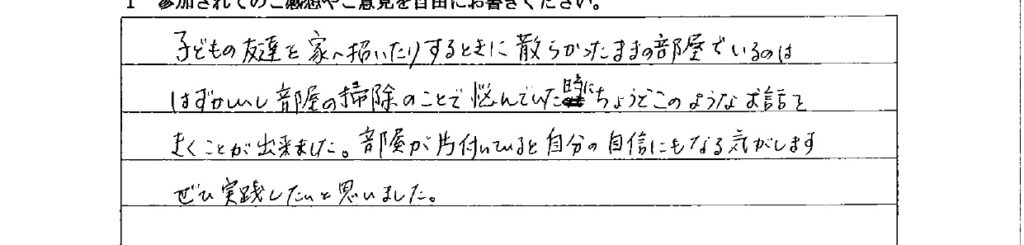 1 参加されてのご感想やご意見を自由にお書きください。
子どもの友達を家へ招いたりするときに散らかったままの部屋でいるのは
はずかしいし部屋の掃除のことで悩んでいた時にちょうどこのようなお話を
きくことが出来ました。部屋が片付いていると自分の自信にもなる気がします
ぜひ実践したいと思いました。